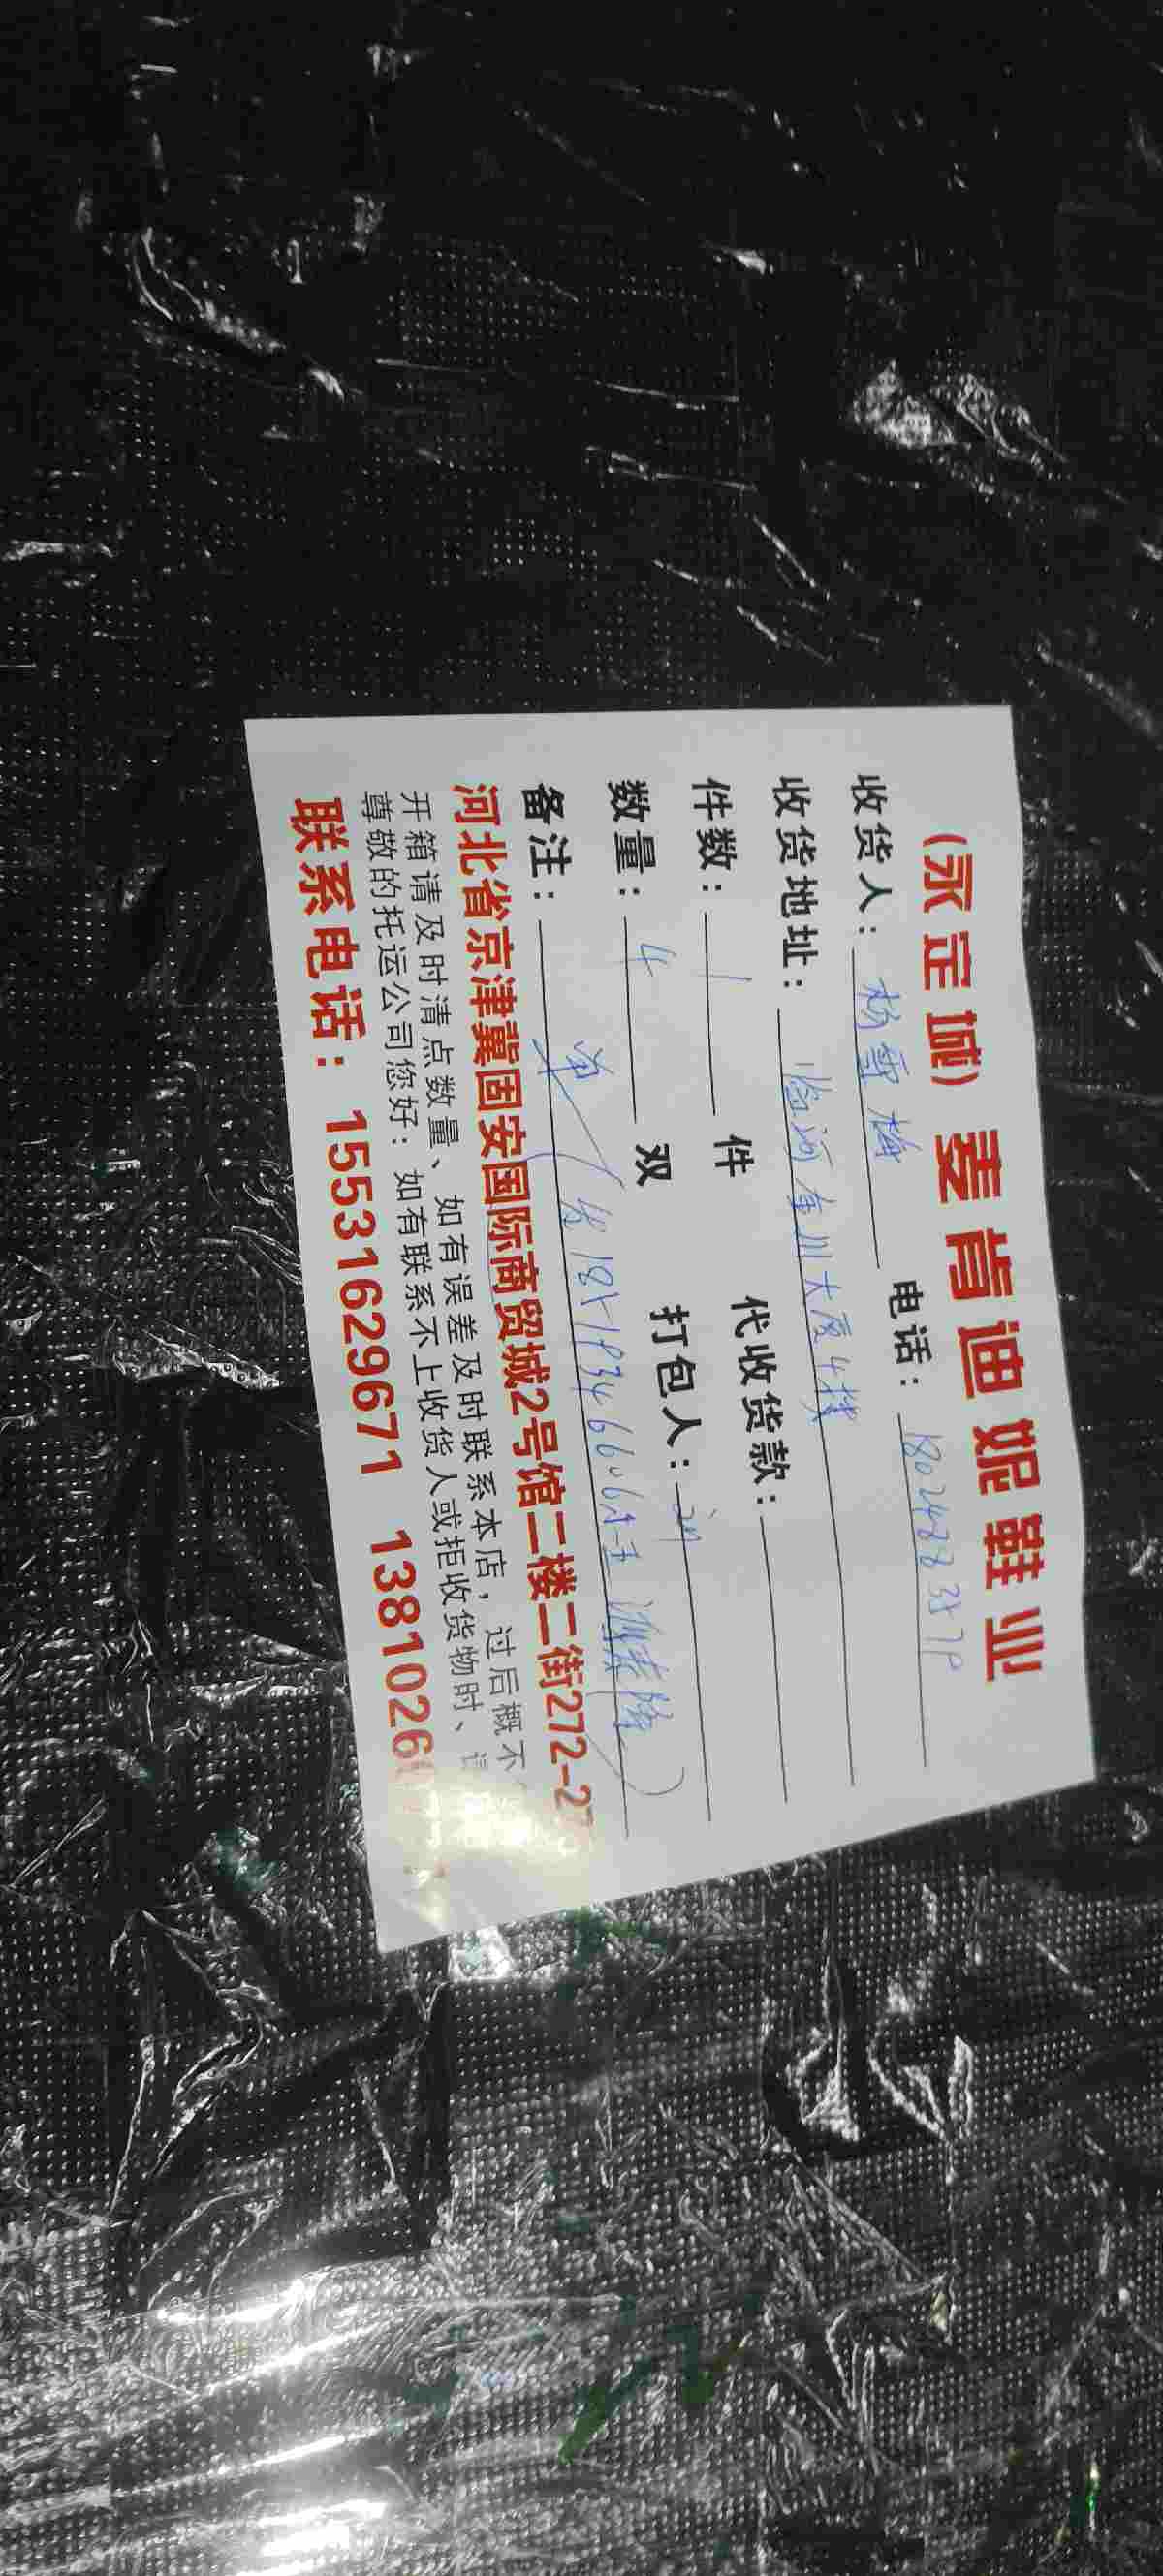 (永定城) 麦肯迪妮鞋业
收货人: 杨雪梅 电话:
收货地址: 临河金川大厦4楼
件数: 1 件 代收货款:
数量: 4 双 打包人:
备注:
河北省京津冀固安国际商贸城2号馆二楼二街272-27
开箱请及时清点数量、如有误差及时联系本店,过后概不
尊敬的托运公司您好: 如有联系不上收货人或拒收货物时、请
联系电话: 15531629671 1381026